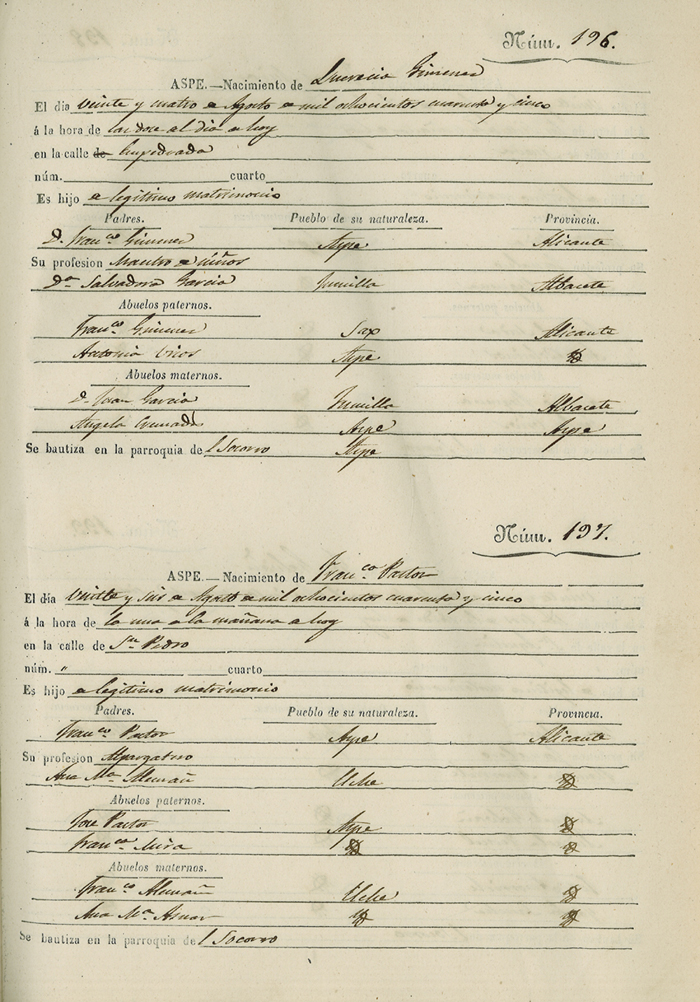 Núm. 196.
ASPE.—Nacimiento de Lucrecia Gimenez
El dia veinte y cuatro de Agosto de mil ochocientos cuarenta y cinco
á la hora de las doce del dia de hoy
en la calle de Empedrada
núm. cuarto
Es hijo de legitimo matrimonio
Padres. Pueblo de su naturaleza. Provincia.
D. Franco Gimenez Aspe Alicante
Su profesion Maestro de niños
Da Salvadora Garcia Jumilla Albacete
Abuelos paternos.
Franco Gimenez Sax Alicante
Antonia Aspe
Abuelos maternos.
D. Juan Garcia Jumilla Albacete
Angela Aspe Aspe
Se bautiza en la parroquia del Socorro Aspe
Núm. 197.
ASPE.—Nacimiento de Franca Pastor
El dia veinte y seis de Agosto de mil ochocientos cuarenta y cinco
á la hora de la una de la mañana de hoy
en la calle de Sn Pedro
núm. " cuarto
Es hijo de legitimo matrimonio
Padres. Pueblo de su naturaleza. Provincia.
Franco Pastor Aspe Alicante
Su profesion Alpargatero
Ana Ma Alemañ Elche
Abuelos paternos.
Jose Pastor Aspe
Franca Mira
Abuelos maternos.
Franco Alemañ Elche
Ana Ma Aznar
Se bautiza en la parroquia del Socorro